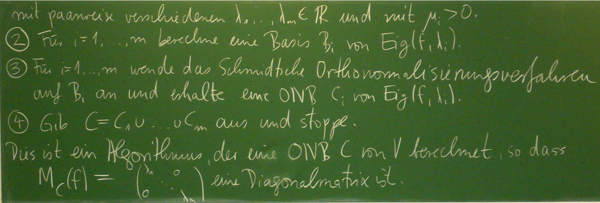 mit paarweise verschiedenen λ₁,...,λₘ ∈ ℝ und mit μᵢ > 0.
② Für i=1,...,m berechne eine Basis Bᵢ von Eig(f,λᵢ).
③ Für i=1,...,m wende das Schmidtsche Orthonormalisierungsverfahren
auf Bᵢ an und erhalte eine ONB Cᵢ von Eig(f,λᵢ).
④ Gib C = C₁ ∪ ... ∪ Cₘ aus und stoppe.
Dies ist ein Algorithmus, der eine ONB C von V berechnet, so dass
M_C(f) = (λ₁ ⋱ 0 0 λₙ) eine Diagonalmatrix ist.